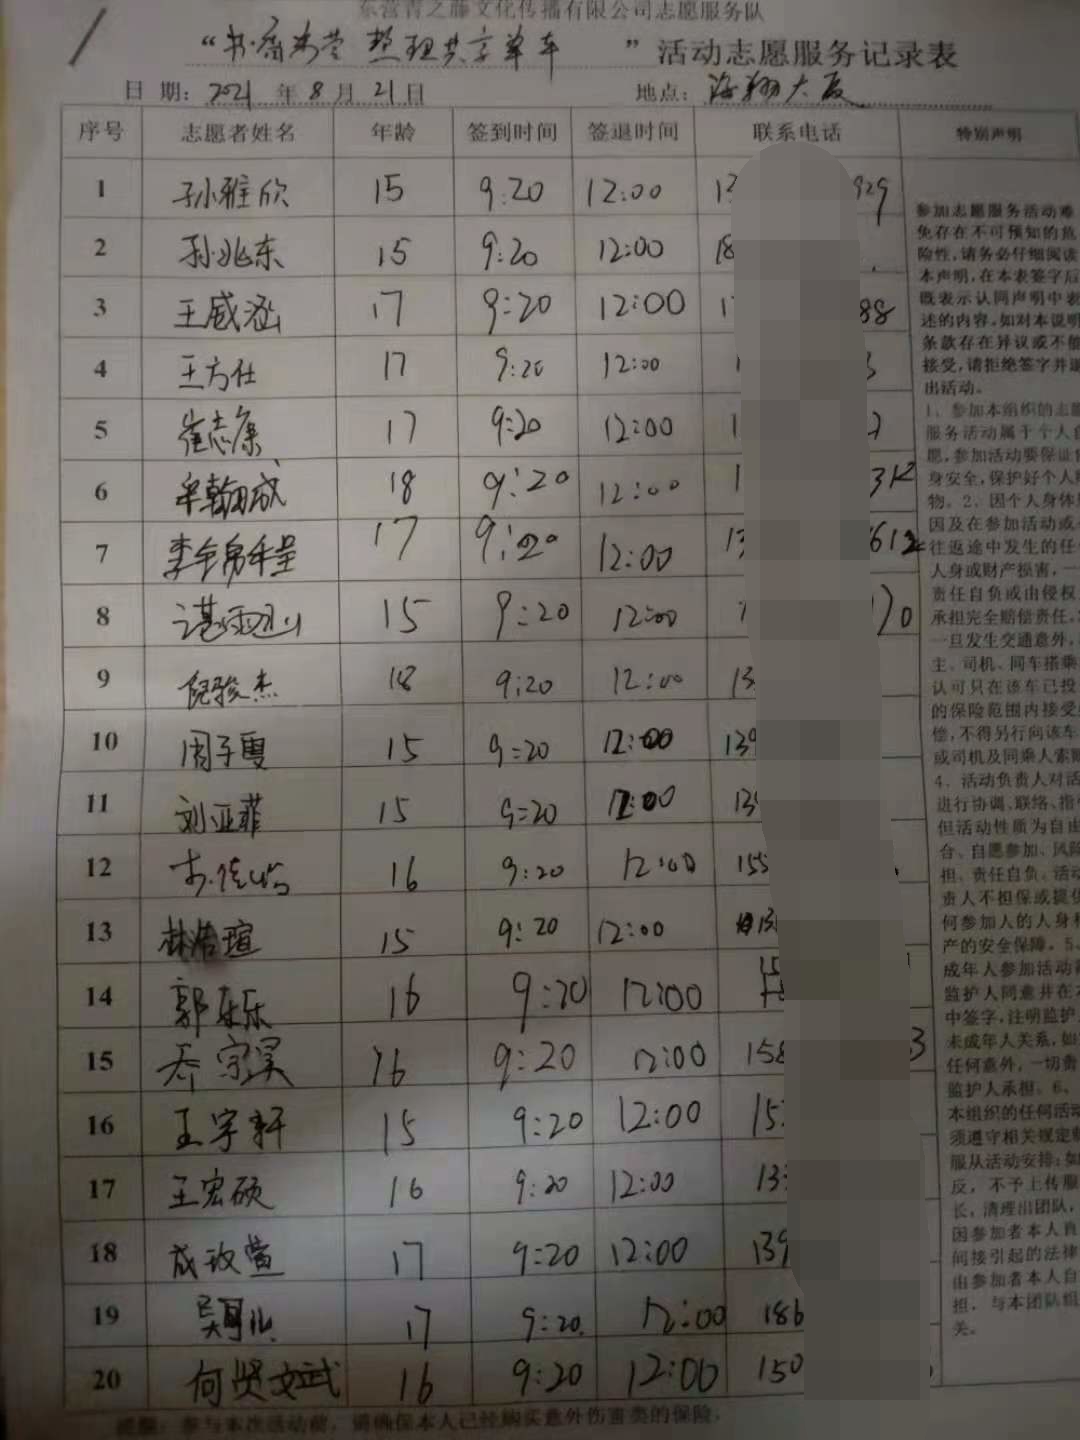 东营青之藤文化传播有限公司志愿服务队
“书香 整理共享单车 ”活动志愿服务记录表
日期: 2021 年 8 月 21 日 地点: 海翔大厦
序号 志愿者姓名 年龄 签到时间 签退时间 联系电话 特别声明
1 孙雅欣 15 9:20 12:00 13 929
2 孙兆东 15 9:20 12:00 18
3 王威涵 17 9:20 12:00 1 88
4 王方仕 17 9:20 12:00 1
5 崔志康 17 9:20 12:00 1
6 牟翰成 18 9:20 12:00 1
7 17 9:20 12:00 13 612
8 15 9:20 12:00 70
9 倪骏杰 18 9:20 12:00 13
10 周子雯 15 9:20 12:00 139
11 刘亚菲 15 9:20 12:00 139
12 16 9:20 12:00 155
13 林浩瑄 15 9:20 12:00 13
14 郭乐乐 16 9:20 12:00 15
15 乔宗昊 16 9:20 12:00 158 3
16 王宇轩 15 9:20 12:00 15
17 王宏硕 16 9:20 12:00 13
18 成玫萱 17 9:20 12:00 139
19 17 9:20 12:00 186
20 何贤文武 16 9:20 12:00 150
参加志愿服务活动难
免存在不可预知的危
险性,请务必仔细阅读
本声明,在本表签字后
既表示认同声明中表
述的内容,如对本说明
条款存在异议或不能
接受,请拒绝签字并退
出活动。
1、参加本组织的志愿
服务活动属于个人自
愿,参加活动要保证
身安全,保护好个人
物。2、因个人身体
因及在参加活动或
往返途中发生的任
人身或财产损害,一
责任自负或由侵权
承担完全赔偿责任,
一旦发生交通意外,
主、司机、同车搭乘
认可只在该车已投
的保险范围内接受
偿,不得另行向该车
或司机及同乘人索赔
4、活动负责人对活
进行协调、联络、指
但活动性质为自由
合、自愿参加、风险
担、责任自负、活动
责人不担保或提供
何参加人的人身和
产的安全保障。5、
成年人参加活动
监护人同意并在
中签字,注明监护
未成年人关系,如
任何意外,一切责
监护人承担。6、
本组织的任何活动
须遵守相关规定
服从活动安排;如
反,不予上传服
长,清理出团队,
因参加者本人
间接引起的法律
由参加者本人自
担,与本团队组
关。
提醒:参与本次活动前,请确保本人已经购买意外伤害类的保险。